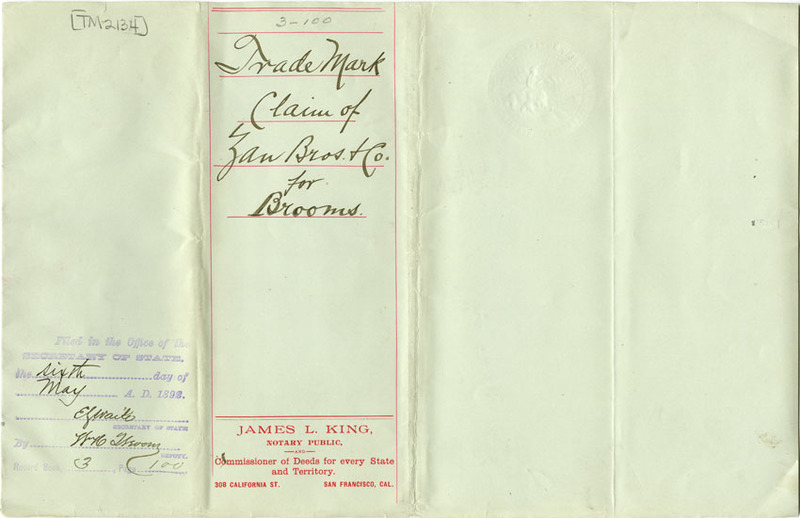 [TM 2134]
3-100
Trade Mark
Claim of
Zan Bros. & Co.
for
Brooms.
Filed in the Office of the
SECRETARY OF STATE,
the sixth day of
May A. D. 1892.
SECRETARY OF STATE
By
DEPUTY.
Record Book, 3, Page 100
JAMES L. KING,
NOTARY PUBLIC,
—AND—
Commissioner of Deeds for every State
and Territory.
308 CALIFORNIA ST. SAN FRANCISCO, CAL.